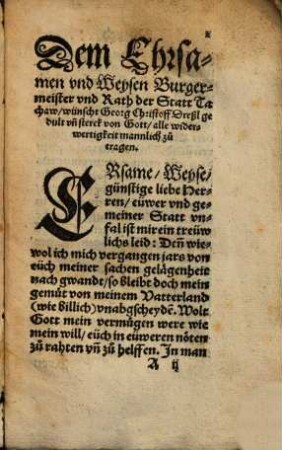 Dem Ehrsa-
men vnd Weysen Burger-
meister vnd Rath der Statt Ta
chaw/wünscht Georg Christoff Dreßl ge
dult vñ sterck von Gott/alle wider-
wertigkeit mannlich zů
tragen.
ERsame/Weyse/
günstige liebe Her-
ren/eüwer vnd ge-
meiner Statt vn-
fal ist mir ein treüw
lichs leid: Deñ wie-
wol ich mich vergangen jars von
eüch meiner sachen gelägenheit
nach gwandt/so bleibt doch mein
gemüt von meinem Vatterland
(wie billich) vnabgscheydẽ. Wolt
Gott mein vermügen were wie
mein will/eüch in eüweren nöten
zů rahten vñ zů helffen. In man
A ij